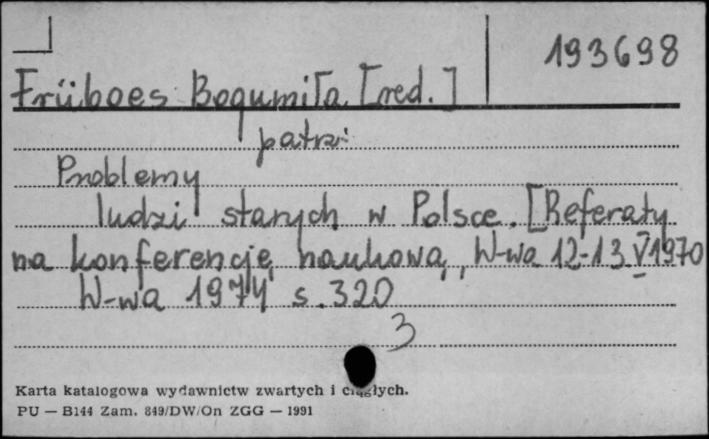 193698
Früboes Bogumiła [red.]
patrz
Problemy
ludzi starych w Polsce. [Referaty
na konferencję naukową, W-wa 12-13 V 1970
W-wa 1974 s. 320
3
Karta katalogowa wydawnictw zwartych i ciągłych.
PU — B144 Zam. 849/DW/On ZGG — 1991